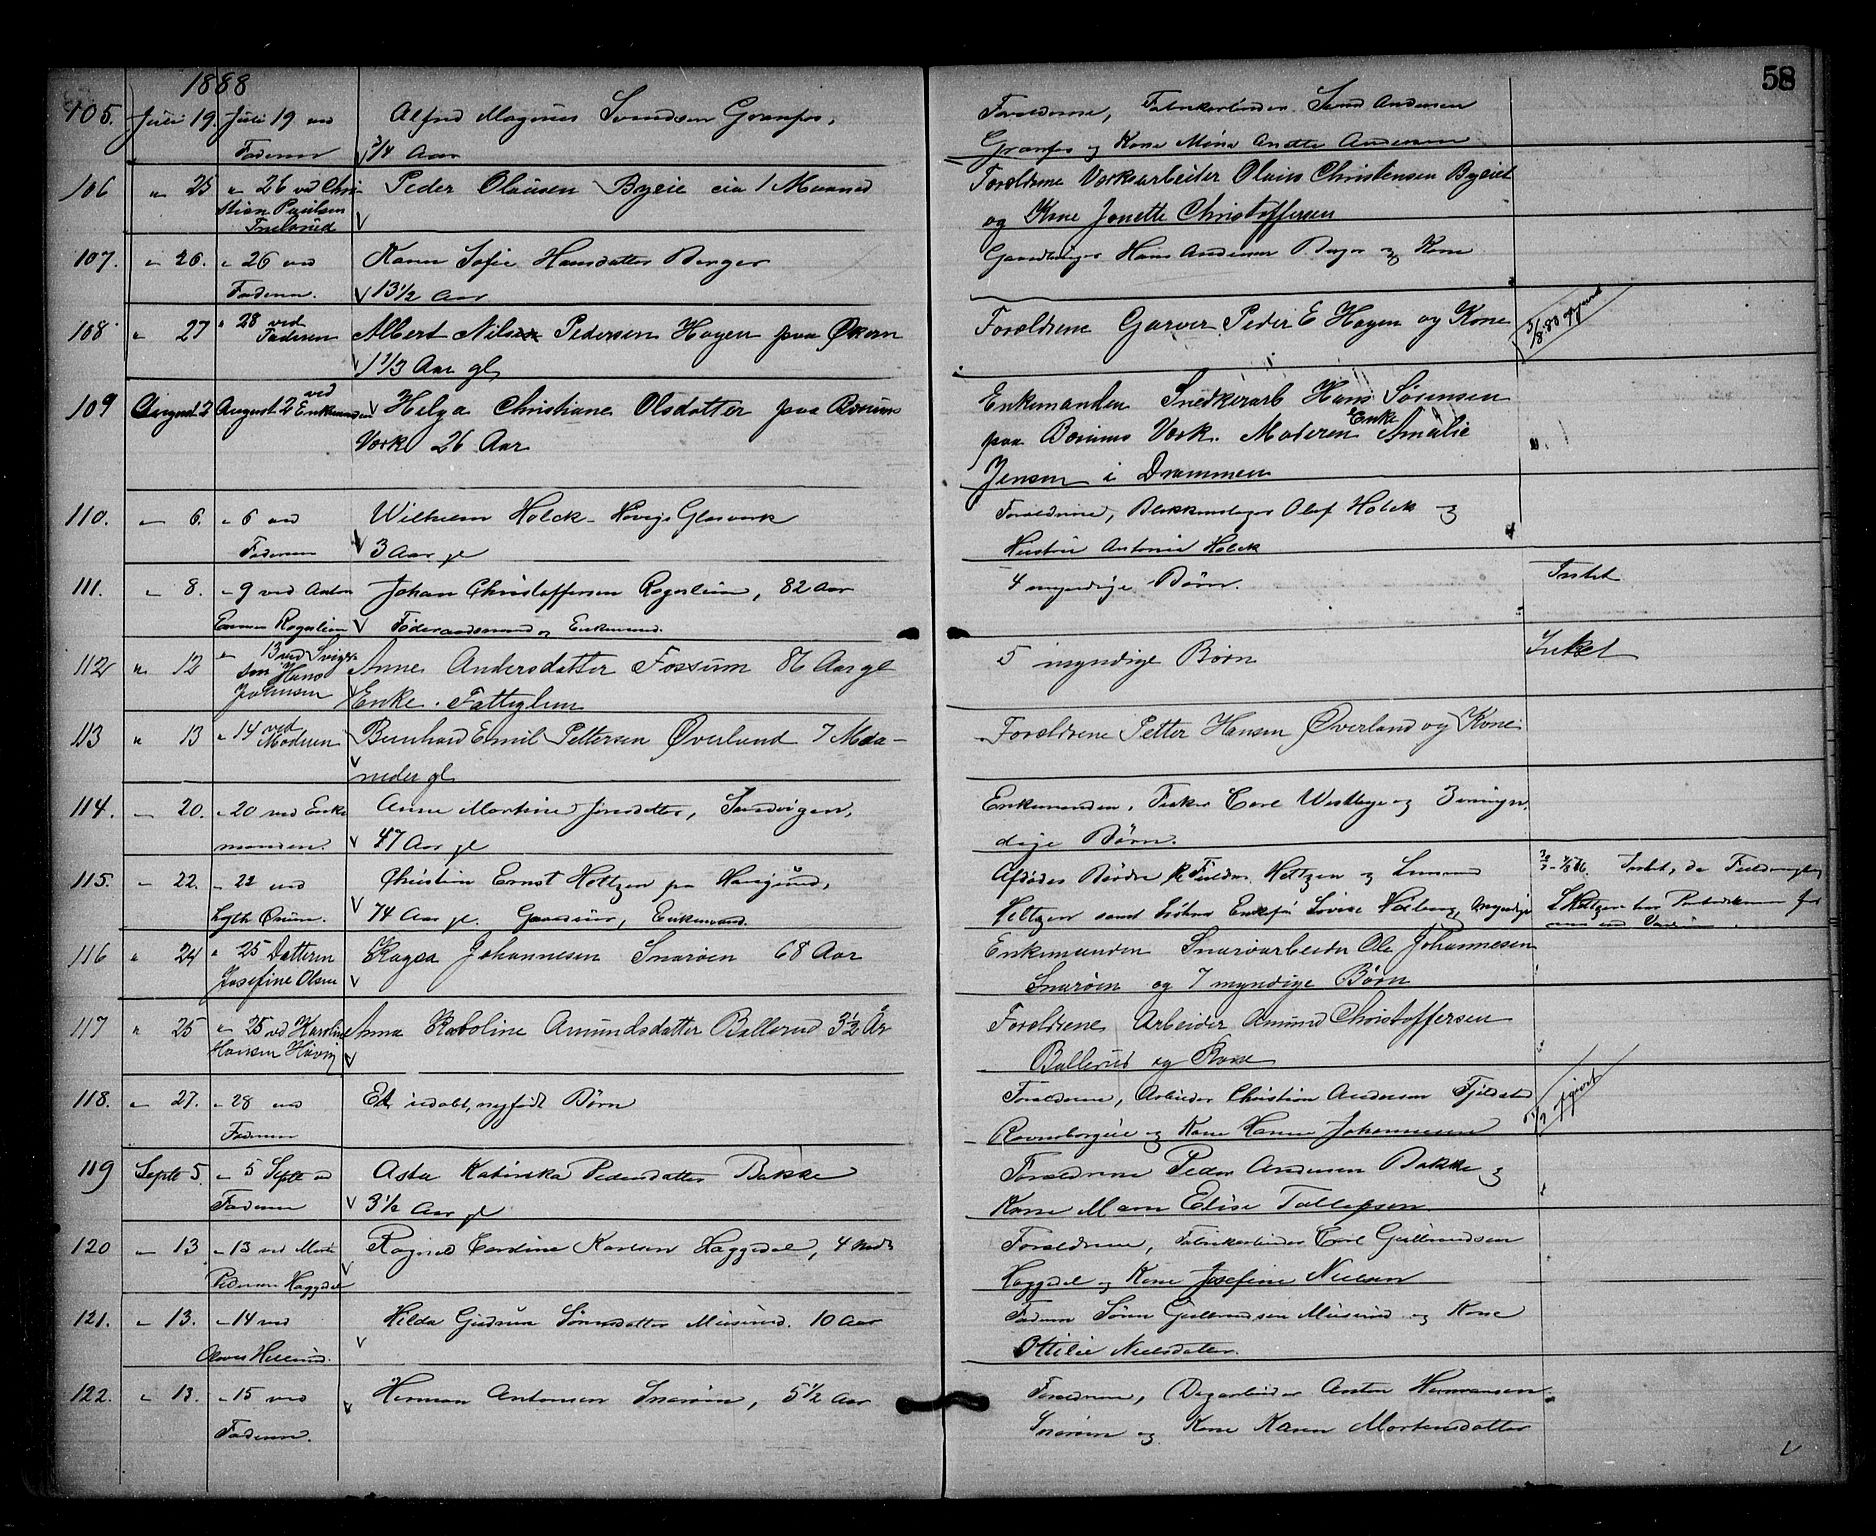 58
1888
105. Juli 19. Juli 19 ved Alfred Magnus Svendsen Granfos, Forældrene, Fabrikarbeider Svend Andersen
Faderen 3/4 Aar Granfos og Kone Mina Anette Andersen
106 " 25 " 26 ved Chri- Peder Olausen Byeie cia 1 Maaned Forældrene Værksarbeider Olaus Christensen Byeiet
stian Paulsen og Kone Jonette Christoffersen
107. " 26. " 26 ved Karen Sofie Hansdatter Berger Gaardbruger Hans Andersen Berger og Kone
Faderen. 13 1/2 Aar
108 " 27 " 28 ved Albert Nilsen Pedersen Hagen paa Økern Forældrene Garver Peder E Hagen og Kone
Faderen 1 1/3 Aar gl
109 August 2 August 2 ved Enkemanden Helga Christiane Olsdatter paa Bærums Enkemanden Snedkerarb Hans Sørensen
Værk 26 Aar paa Bærums Værk. Moderen Enke Amalie
Jensen i Drammen
110. " 6. " 6 ved Wilhelm Holck - Høvigs Glasværk Forældrene, Blikkenslager Olaf Holck og
Faderen 3 Aar gl Hustru Antonie Holck
111. " 8. " 9 ved Anton Johan Christoffersen Ragerlien, 82 Aar 4 myndige Børn. Intet
Ragerlien Føderaadsmand og Enkemand.
112 " 12 " 13 ved Sviger- Anne Andersdatter Fossum 86 Aar gl 5 myndige Børn Intet
søn Hans Johansen Enke. Fattiglem
113 " 13 " 14 ved Moderen Bernhard Emil Pettersen Øverland 7 Maa- Forældrene Petter Hansen Øverland og Kone
neder gl
114. " 20. " 20 ved Enke Anne Martine Jensdatter, Sandvigen, Enkemanden, Fisker Carl Westbye og 3 umyn
manden. 47 Aar gl dige Børn.
115. " 22. " 22 ved Christian Ernst Heltzen pr Haugsund, Afdødes Brødre Heltzen og
74 Aar gl. Enkemand. Heltzen samt Enkefru Lovise
116 " 24 " 25 Datteren Ragsa Johannesen Snarøen 68 Aar Enkemanden Snarøarbeider Ole Johannesen
Josefine Olsen Snarøen og 7 myndige Børn
117 " 25 " 25 ved Karoline Anna Karoline Amundsdatter Ballerud 3 1/2 År Forældrene Arbeider Amund Christoffersen
Hansen Høvig Ballerud og Kone
118. " 27. " 28 ved Et udøbt, nyfødt Børn Forældrene, Arbeider Christian Andersen Fjeldstad
Faderen Ravnsborgeie og Kone Hanna Johannesen
119 Septe 5. " 5 Septe ved Asta Katinka Pedersdatter Bakke Forældrene Peder Andersen Bakke og
Faderen 3 1/2 Aar gl Kone Maren Elise Tollefsen
120 " 13 " 13 ved Ragnild Cardine Karlsen Haggedal, 4 Forældrene, Fabrikarbeider Carl Gulbrandsen
Pedersen Haggedal Haggedal og Kone Josefine Nielsen
121. " 13. " 14 ved Hilda Gudrun Sørensdatter Miserud. 10 Aar Fadren Søren Gulbrandsen Miserud og Kone
Ottilie Nielsdatter.
122. " 13. " 15 ved Herman Antonsen Snarøen, 5 1/2 Aar Forældrene, Dagarbeider Anton Hermansen
Faderen. Snarøen og Kone Karen Mortensdatter